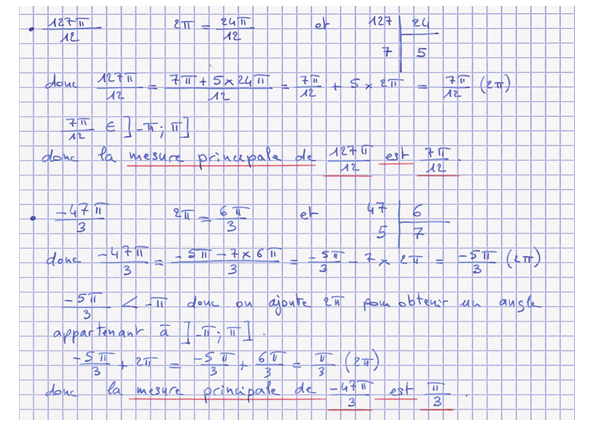 • 127π/12 2π = 24π/12 et 127 | 24
7 | 5
donc 127π/12 = (7π + 5 × 24π)/12 = 7π/12 + 5 × 2π = 7π/12 (2π)
7π/12 ∈ ]-π; π]
donc la mesure principale de 127π/12 est 7π/12.
• -47π/3 2π = 6π/3 et 47 | 6
5 | 7
donc -47π/3 = (-5π - 7×6π)/3 = -5π/3 - 7 × 2π = -5π/3 (2π)
-5π/3 < -π donc on ajoute 2π pour obtenir un angle
appartenant à ]-π; π].
-5π/3 + 2π = -5π/3 + 6π/3 = π/3 (2π)
donc la mesure principale de -47π/3 est π/3.